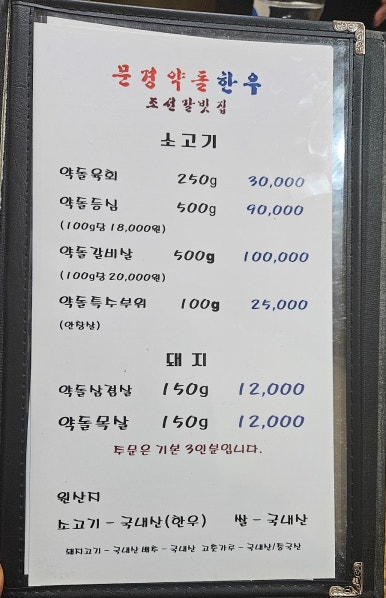 문경약돌한우
조선갈빗집
소고기
약돌육회 250g 30,000
약돌등심 500g 90,000
(100g당 18,000원)
약돌갈비살 500g 100,000
(100g당 20,000원)
약돌특수부위 100g 25,000
(안창살)
돼지
약돌삼겹살 150g 12,000
약돌목살 150g 12,000
주문은 기본 3인분입니다.
원산지
소고기 - 국내산(한우) 쌀 - 국내산
돼지고기 - 국내산 배추 - 국내산 고춧가루 - 국내산/중국산